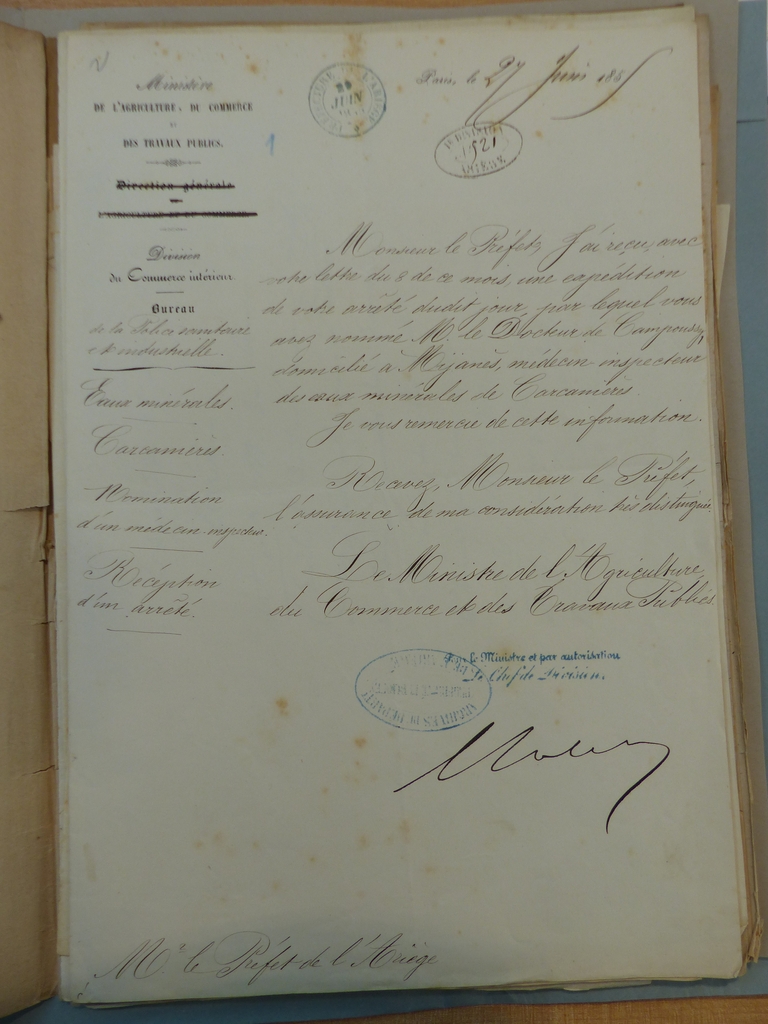 Ministère
DE L'AGRICULTURE, DU COMMERCE
ET
DES TRAVAUX PUBLICS.
Direction générale
Division
du Commerce intérieur
Bureau
de la Police sanitaire
et industrielle.
Eaux minérales.
Carcanières.
Nomination
d'un médecin-inspecteur.
Réception
d'un arrêté.
JUIN
1
Paris, le 27 Juin 186
1521
ARIÈGE
Monsieur le Préfet, J'ai reçu, avec
votre lettre du 8 de ce mois, une expédition
de votre arrêté dudit jour, par lequel vous
avez nommé M. le Docteur de Campoussy,
domicilié à Mijanès, médecin inspecteur
des eaux minérales de Carcanières.
Je vous remercie de cette information.
Recevez, Monsieur le Préfet,
l'assurance de ma considération très distinguée.
Le Ministre de l'Agriculture,
du Commerce et des Travaux Publics.
Pour le Ministre et par autorisation
Le Chef de Division.
ARCHIVES
Mr. le Préfet de l'Ariège